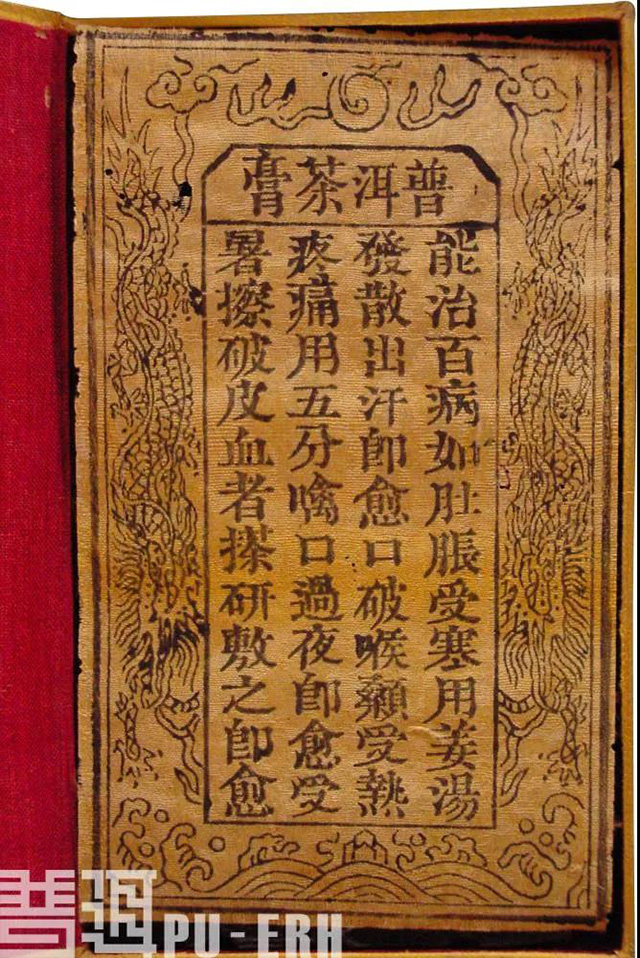 普洱茶膏
能治百病如肚脹受塞用姜湯
發散出汗卽愈口破喉顙受熱
疼痛用五分噙口過夜卽愈受
暑擦破皮血者搽研敷之卽愈
普洱 PU-ERH